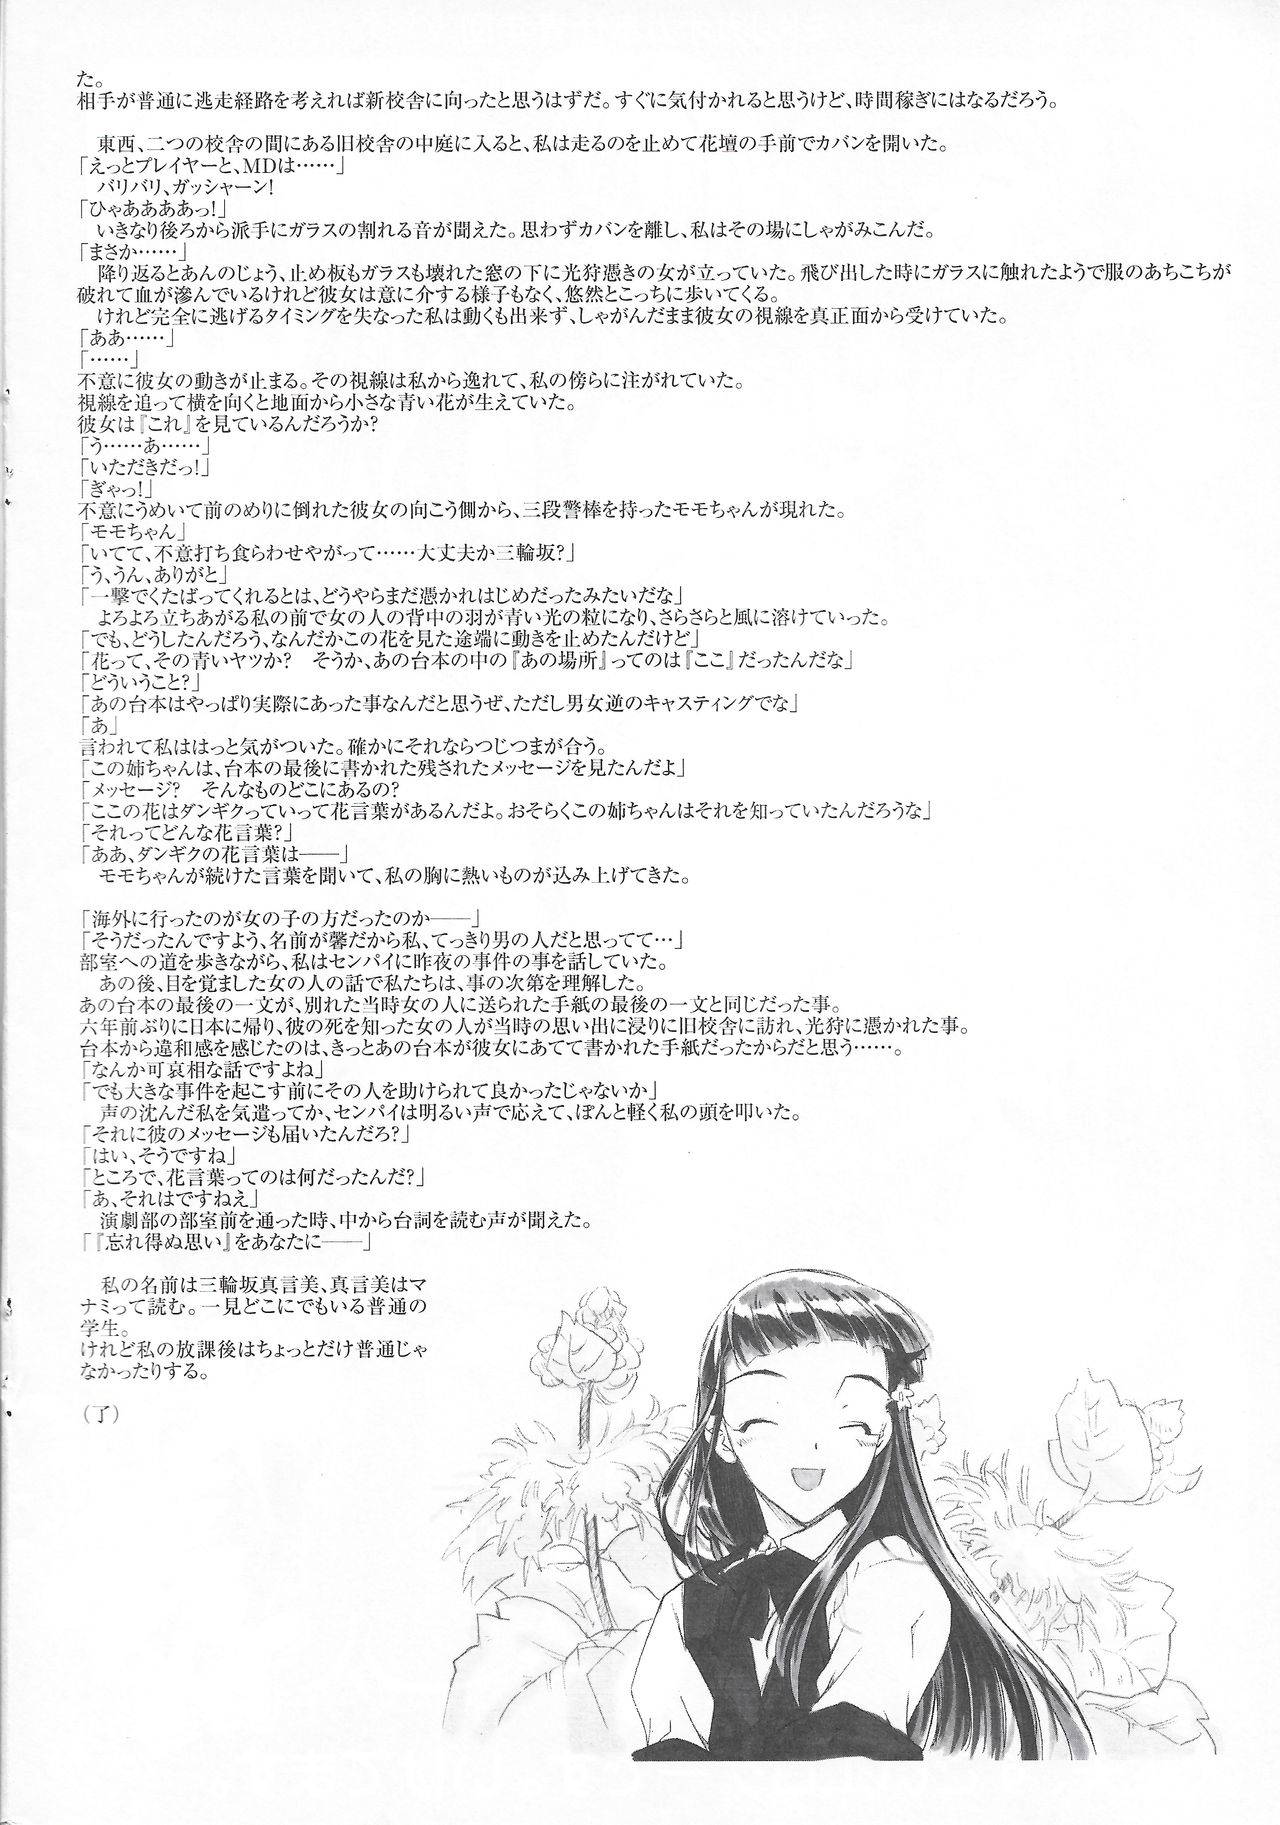 た。
相手が普通に逃走経路を考えれば新校舎に向ったと思うはずだ。すぐに気付かれると思うけど、時間稼ぎにはなるだろう。
東西、二つの校舎の間にある旧校舎の中庭に入ると、私は走るのを止めて花壇の手前でカバンを開いた。
「えっとプレイヤーと、MDは……」
バリバリ、ガッシャーン!
「ひゃああああっ!」
いきなり後ろから派手にガラスの割れる音が聞えた。思わずカバンを離し、私はその場にしゃがみこんだ。
「まさか……」
降り返るとあんのじょう、止め板もガラスも壊れた窓の下に光狩憑きの女が立っていた。飛び出した時にガラスに触れたようで服のあちこちが
破れて血が滲んでいるけれど彼女は意に介する様子もなく、悠然とこっちに歩いてくる。
けれど完全に逃げるタイミングを失なった私は動くも出来ず、しゃがんだまま彼女の視線を真正面から受けていた。
「ああ……」
「……」
不意に彼女の動きが止まる。その視線は私から逸れて、私の傍らに注がれていた。
視線を追って横を向くと地面から小さな青い花が生えていた。
彼女は『これ』を見ているんだろうか?
「う……あ……」
「いただきだっ!」
「ぎゃっ!」
不意にうめいて前のめりに倒れた彼女の向こう側から、三段警棒を持ったモモちゃんが現れた。
「モモちゃん」
「いてて、不意打ち食らわせやがって……大丈夫か三輪坂?」
「う、うん、ありがと」
「一撃でくたばってくれるとは、どうやらまだ憑かれはじめだったみたいだな」
よろよろ立ちあがる私の前で女の人の背中の羽が青い光の粒になり、さらさらと風に溶けていった。
「でも、どうしたんだろう、なんだかこの花を見た途端に動きを止めたんだけど」
「花って、その青いヤツか?　そうか、あの台本の中の『あの場所』ってのは『ここ』だったんだな」
「どういうこと?」
「あの台本はやっぱり実際にあった事なんだと思うぜ、ただし男女逆のキャスティングでな」
「あ」
言われて私ははっと気がついた。確かにそれならつじつまが合う。
「この姉ちゃんは、台本の最後に書かれた残されたメッセージを見たんだよ」
「メッセージ?　そんなものどこにあるの?
「ここの花はダンギクっていって花言葉があるんだよ。おそらくこの姉ちゃんはそれを知っていたんだろうな」
「それってどんな花言葉?」
「ああ、ダンギクの花言葉は――」
モモちゃんが続けた言葉を聞いて、私の胸に熱いものが込み上げてきた。
「海外に行ったのが女の子の方だったのか――」
「そうだったんですよう、名前が馨だから私、てっきり男の人だと思ってて…」
部室への道を歩きながら、私はセンパイに昨夜の事件の事を話していた。
あの後、目を覚ました女の人の話で私たちは、事の次第を理解した。
あの台本の最後の一文が、別れた当時女の人に送られた手紙の最後の一文と同じだった事。
六年前ぶりに日本に帰り、彼の死を知った女の人が当時の思い出に浸りに旧校舎に訪れ、光狩に憑かれた事。
台本から違和感を感じたのは、きっとあの台本が彼女にあてて書かれた手紙だったからだと思う……。
「なんか可哀相な話ですよね」
「でも大きな事件を起こす前にその人を助けられて良かったじゃないか」
声の沈んだ私を気遣ってか、センパイは明るい声で応えて、ぽんと軽く私の頭を叩いた。
「それに彼のメッセージも届いたんだろ?」
「はい、そうですね」
「ところで、花言葉ってのは何だったんだ?」
「あ、それはですねえ」
演劇部の部室前を通った時、中から台詞を読む声が聞えた。
「『忘れ得ぬ思い』をあなたに――」
私の名前は三輪坂真言美、真言美はマ
ナミって読む。一見どこにでもいる普通の
学生。
けれど私の放課後はちょっとだけ普通じゃ
なかったりする。
(了)